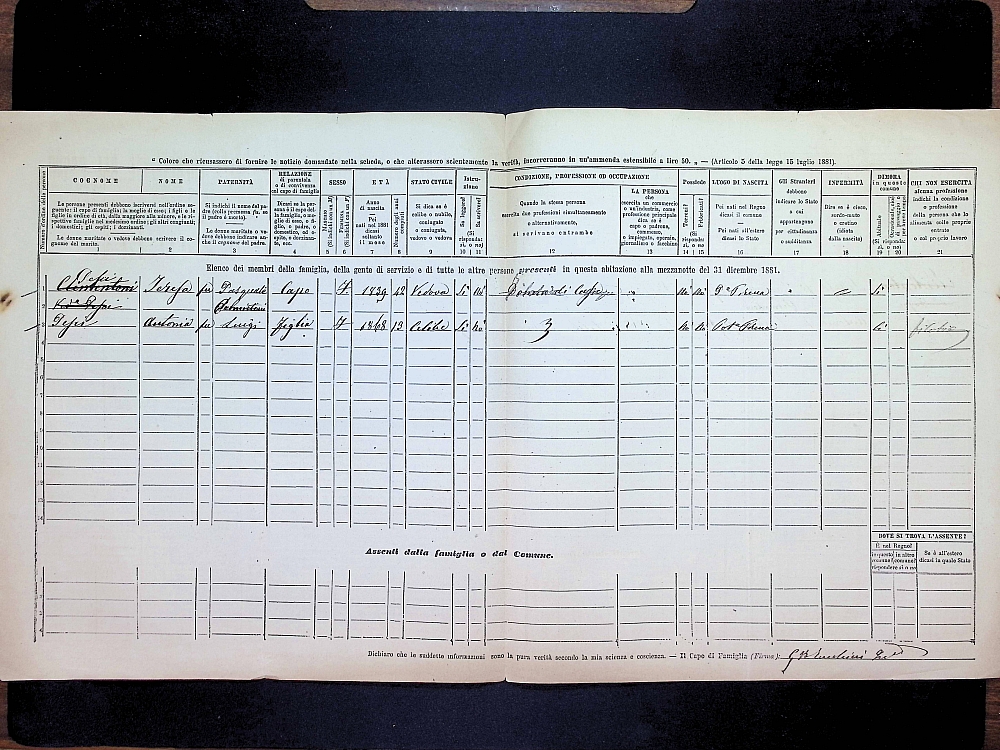 “ Coloro che ricusassero di fornire le notizie domandate nella scheda, o che alterassero scientemente la verità, incorreranno in un'ammenda estensibile a lire 50. „ — (Articolo 5 della legge 15 luglio 1881).
COGNOME
NOME
PATERNITÀ
RELAZIONE di parentela o di convivenza col capo di famiglia
SESSO
ETÀ
STATO CIVILE
Istruzione
CONDIZIONE, PROFESSIONE OD OCCUPAZIONE
Possiede
LUOGO DI NASCITA
Gli Stranieri debbono indicare lo Stato a cui appartengono per cittadinanza o sudditanza
INFERMITÀ
DIMORA in questo comune
CHI NON ESERCITA alcuna professione indichi la condizione o professione della persona che lo alimenta colle proprie entrate o col proprio lavoro
Le persone presenti debbono iscriversi nell'ordine seguente: il capo di famiglia; la moglie di esso; i figli e le figlie in ordine di età, dalla maggiore alla minore, e le rispettive famiglie nel medesimo ordine; gli altri congiunti; i domestici; gli ospiti; i dozzinanti.
Le donne maritate o vedove debbono scrivere il cognome del marito.
Si indichi il nome del padre (colla premessa fu, se il padre è morto).
Le donne maritate o vedove debbono indicare anche il cognome del padre.
Dicasi se la persona è il capo della famiglia, o moglie di esso, o figlio, o padre, o domestico, od ospite, o dozzinante, ecc.
Maschio (Si indichi con un M)
Femmina (Si indichi con un F)
Anno di nascita
Pei nati nel 1881 dicasi soltanto il mese
Numero degli anni compiuti
Si dica se è celibe o nubile, coniugato o coniugata, vedovo o vedova
Sa leggere?
Sa scrivere?
(Si risponda: sì, o no)
Quando la stessa persona esercita due professioni simultaneamente o alternativamente, si scrivano entrambe
LA PERSONA che esercita un commercio o un'industria, come professione principale dica se è capo o padrone, commesso, o impiegato, operaio, giornaliero o facchino
Terreni?
Fabbricati?
(Si risponda: sì o no)
Pei nati nel Regno dicasi il comune
Pei nati all'estero dicasi lo Stato
Dica se è cieco, sordo-muto o cretino (idiota dalla nascita)
Abituale
(Si risponda: sì o no)
1 2 3 4 5 6 7 8 9 10 11 12 13 14 15 16 17 18 19 20 21
Elenco dei membri della famiglia, della gente di servizio e di tutte le altre persone presenti in questa abitazione alla mezzanotte del 31 dicembre 1881.
1 Teresa fu Pasquale Capo F 1839 42 Vedova Sì Nò Nò Nò Sì
Antonia fu Luigi Figlia F 1868 13 Celibe Sì Nò 3 Nò Nò Sì
Assenti dalla famiglia o dal Comune.
DOVE SI TROVA L'ASSENTE?
È nel Regno?
in questo comune? in altro comune?
rispondere sì o no
Se è all'estero dicasi in quale Stato
Dichiaro che le suddette informazioni sono la pura verità secondo la mia scienza e coscienza. — Il Capo di Famiglia (Firma):